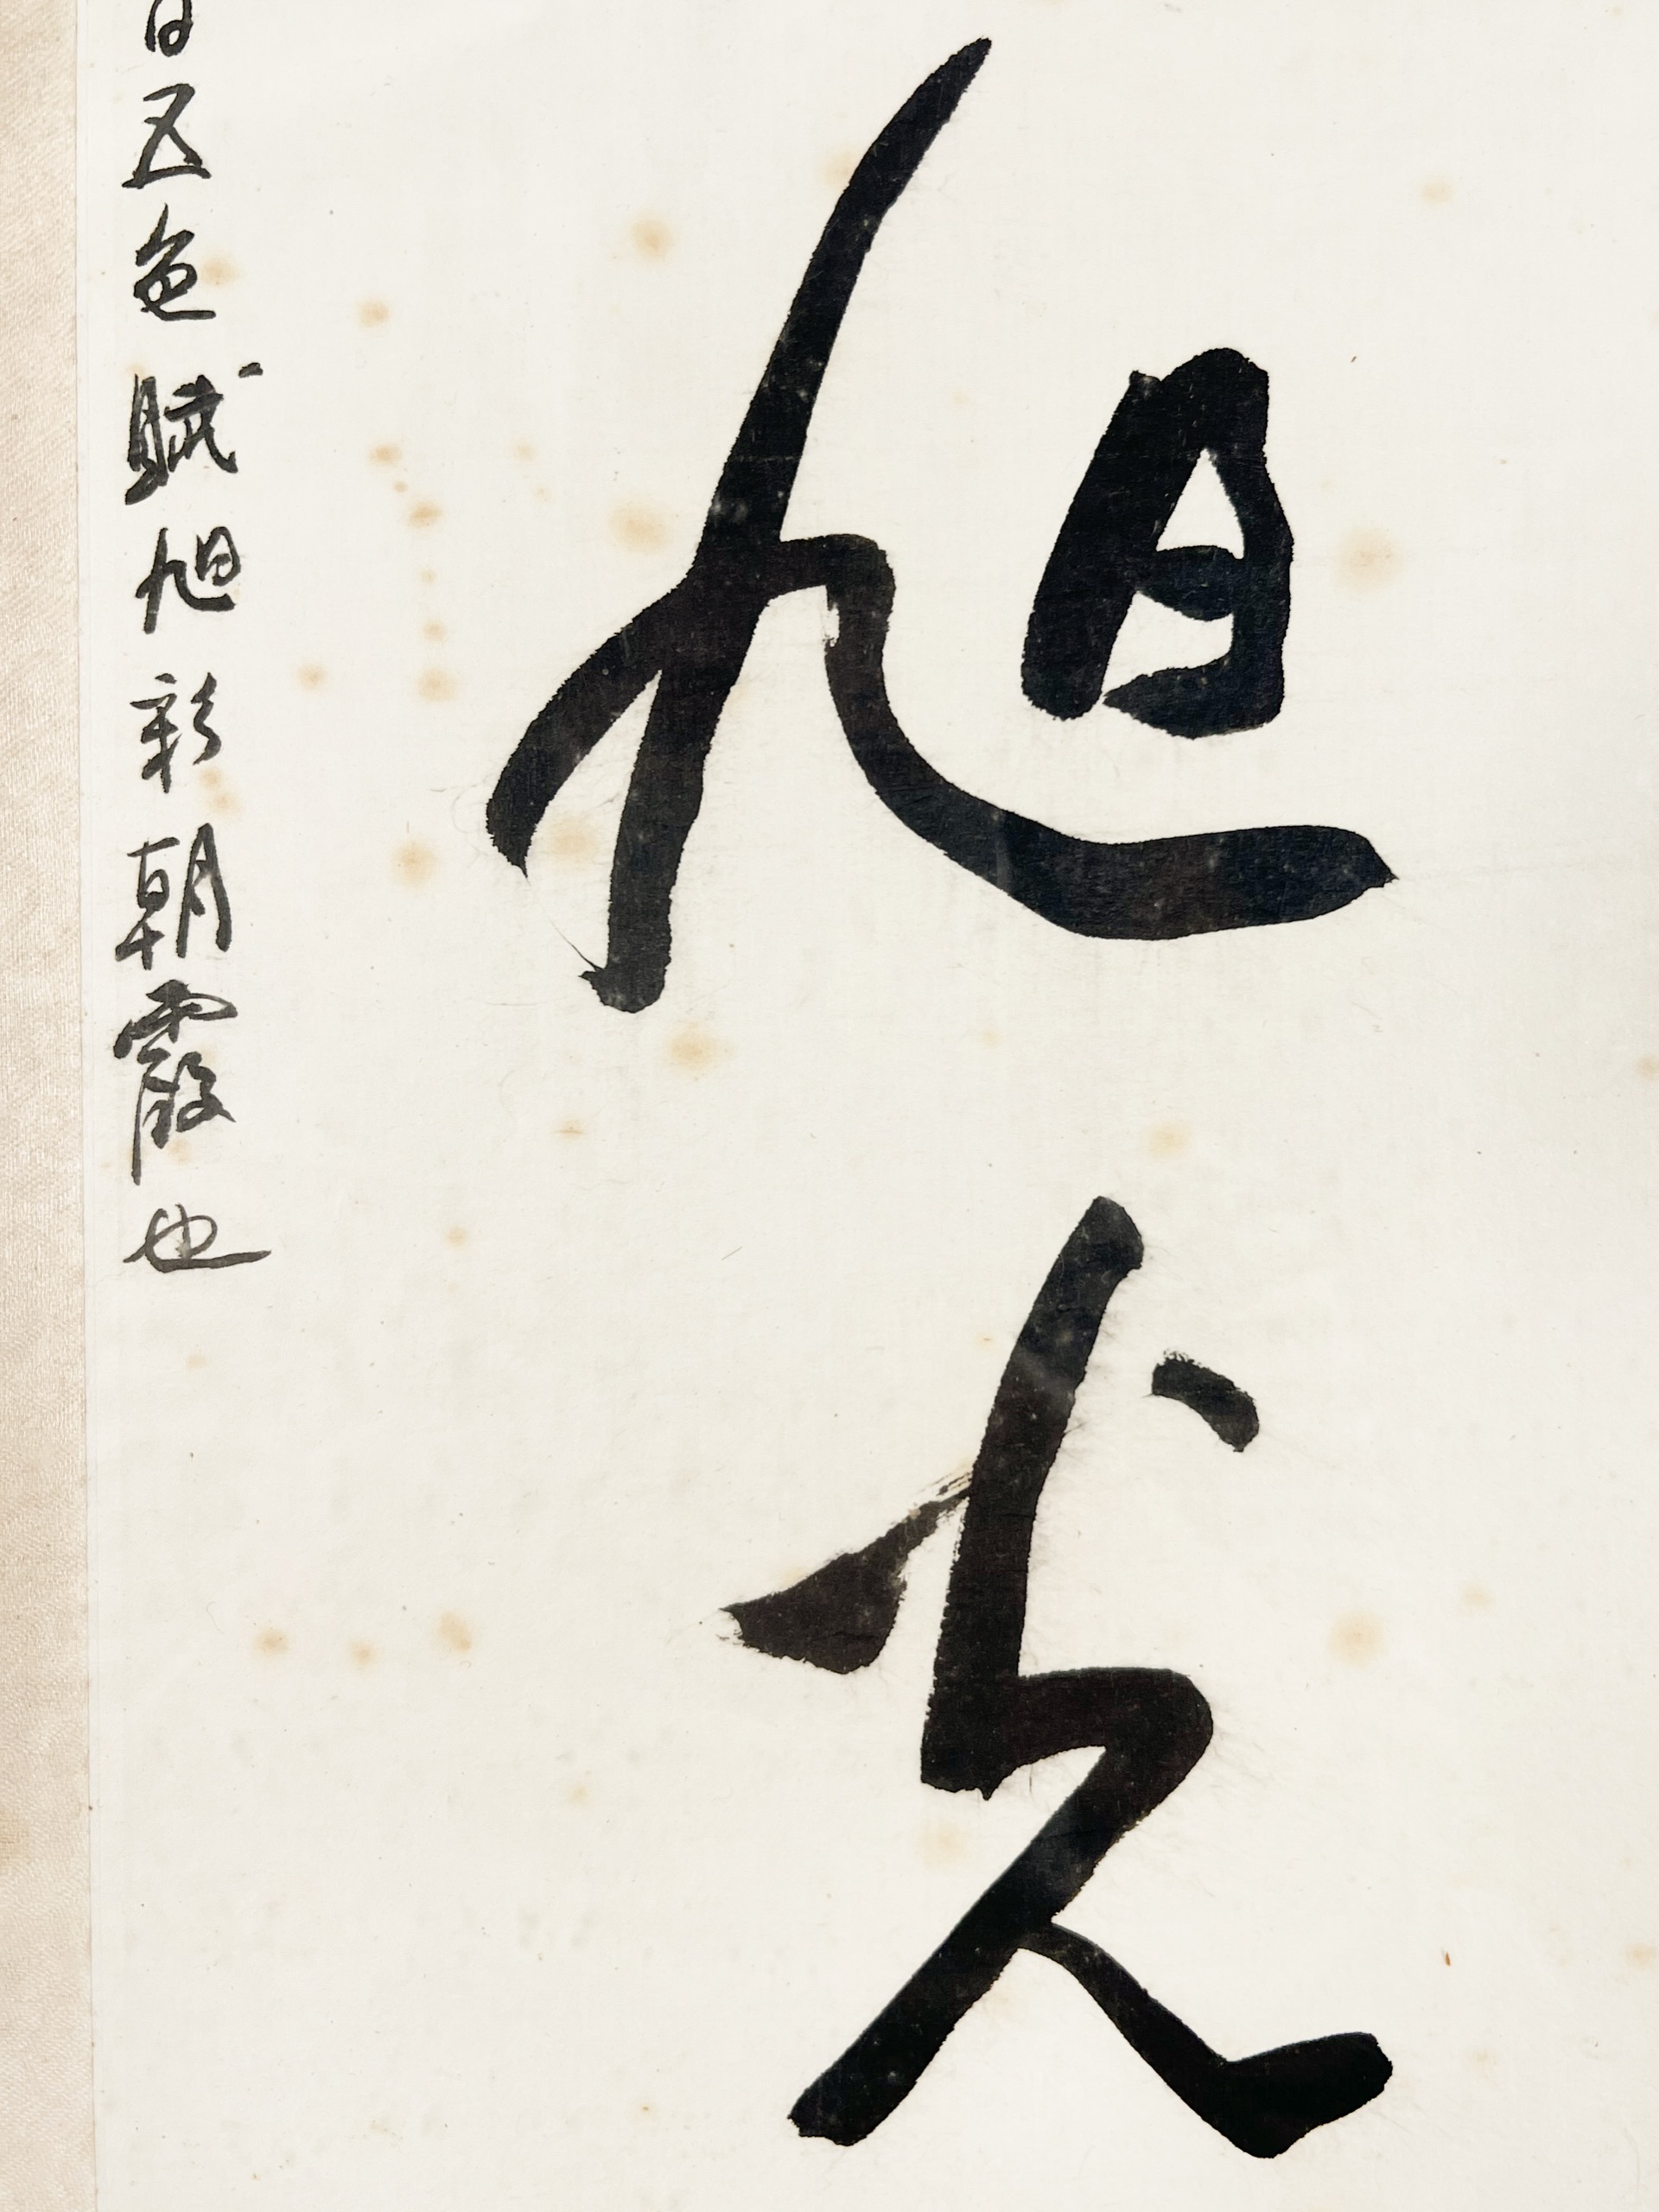 旭光
日五色賦旭彩朝霞也